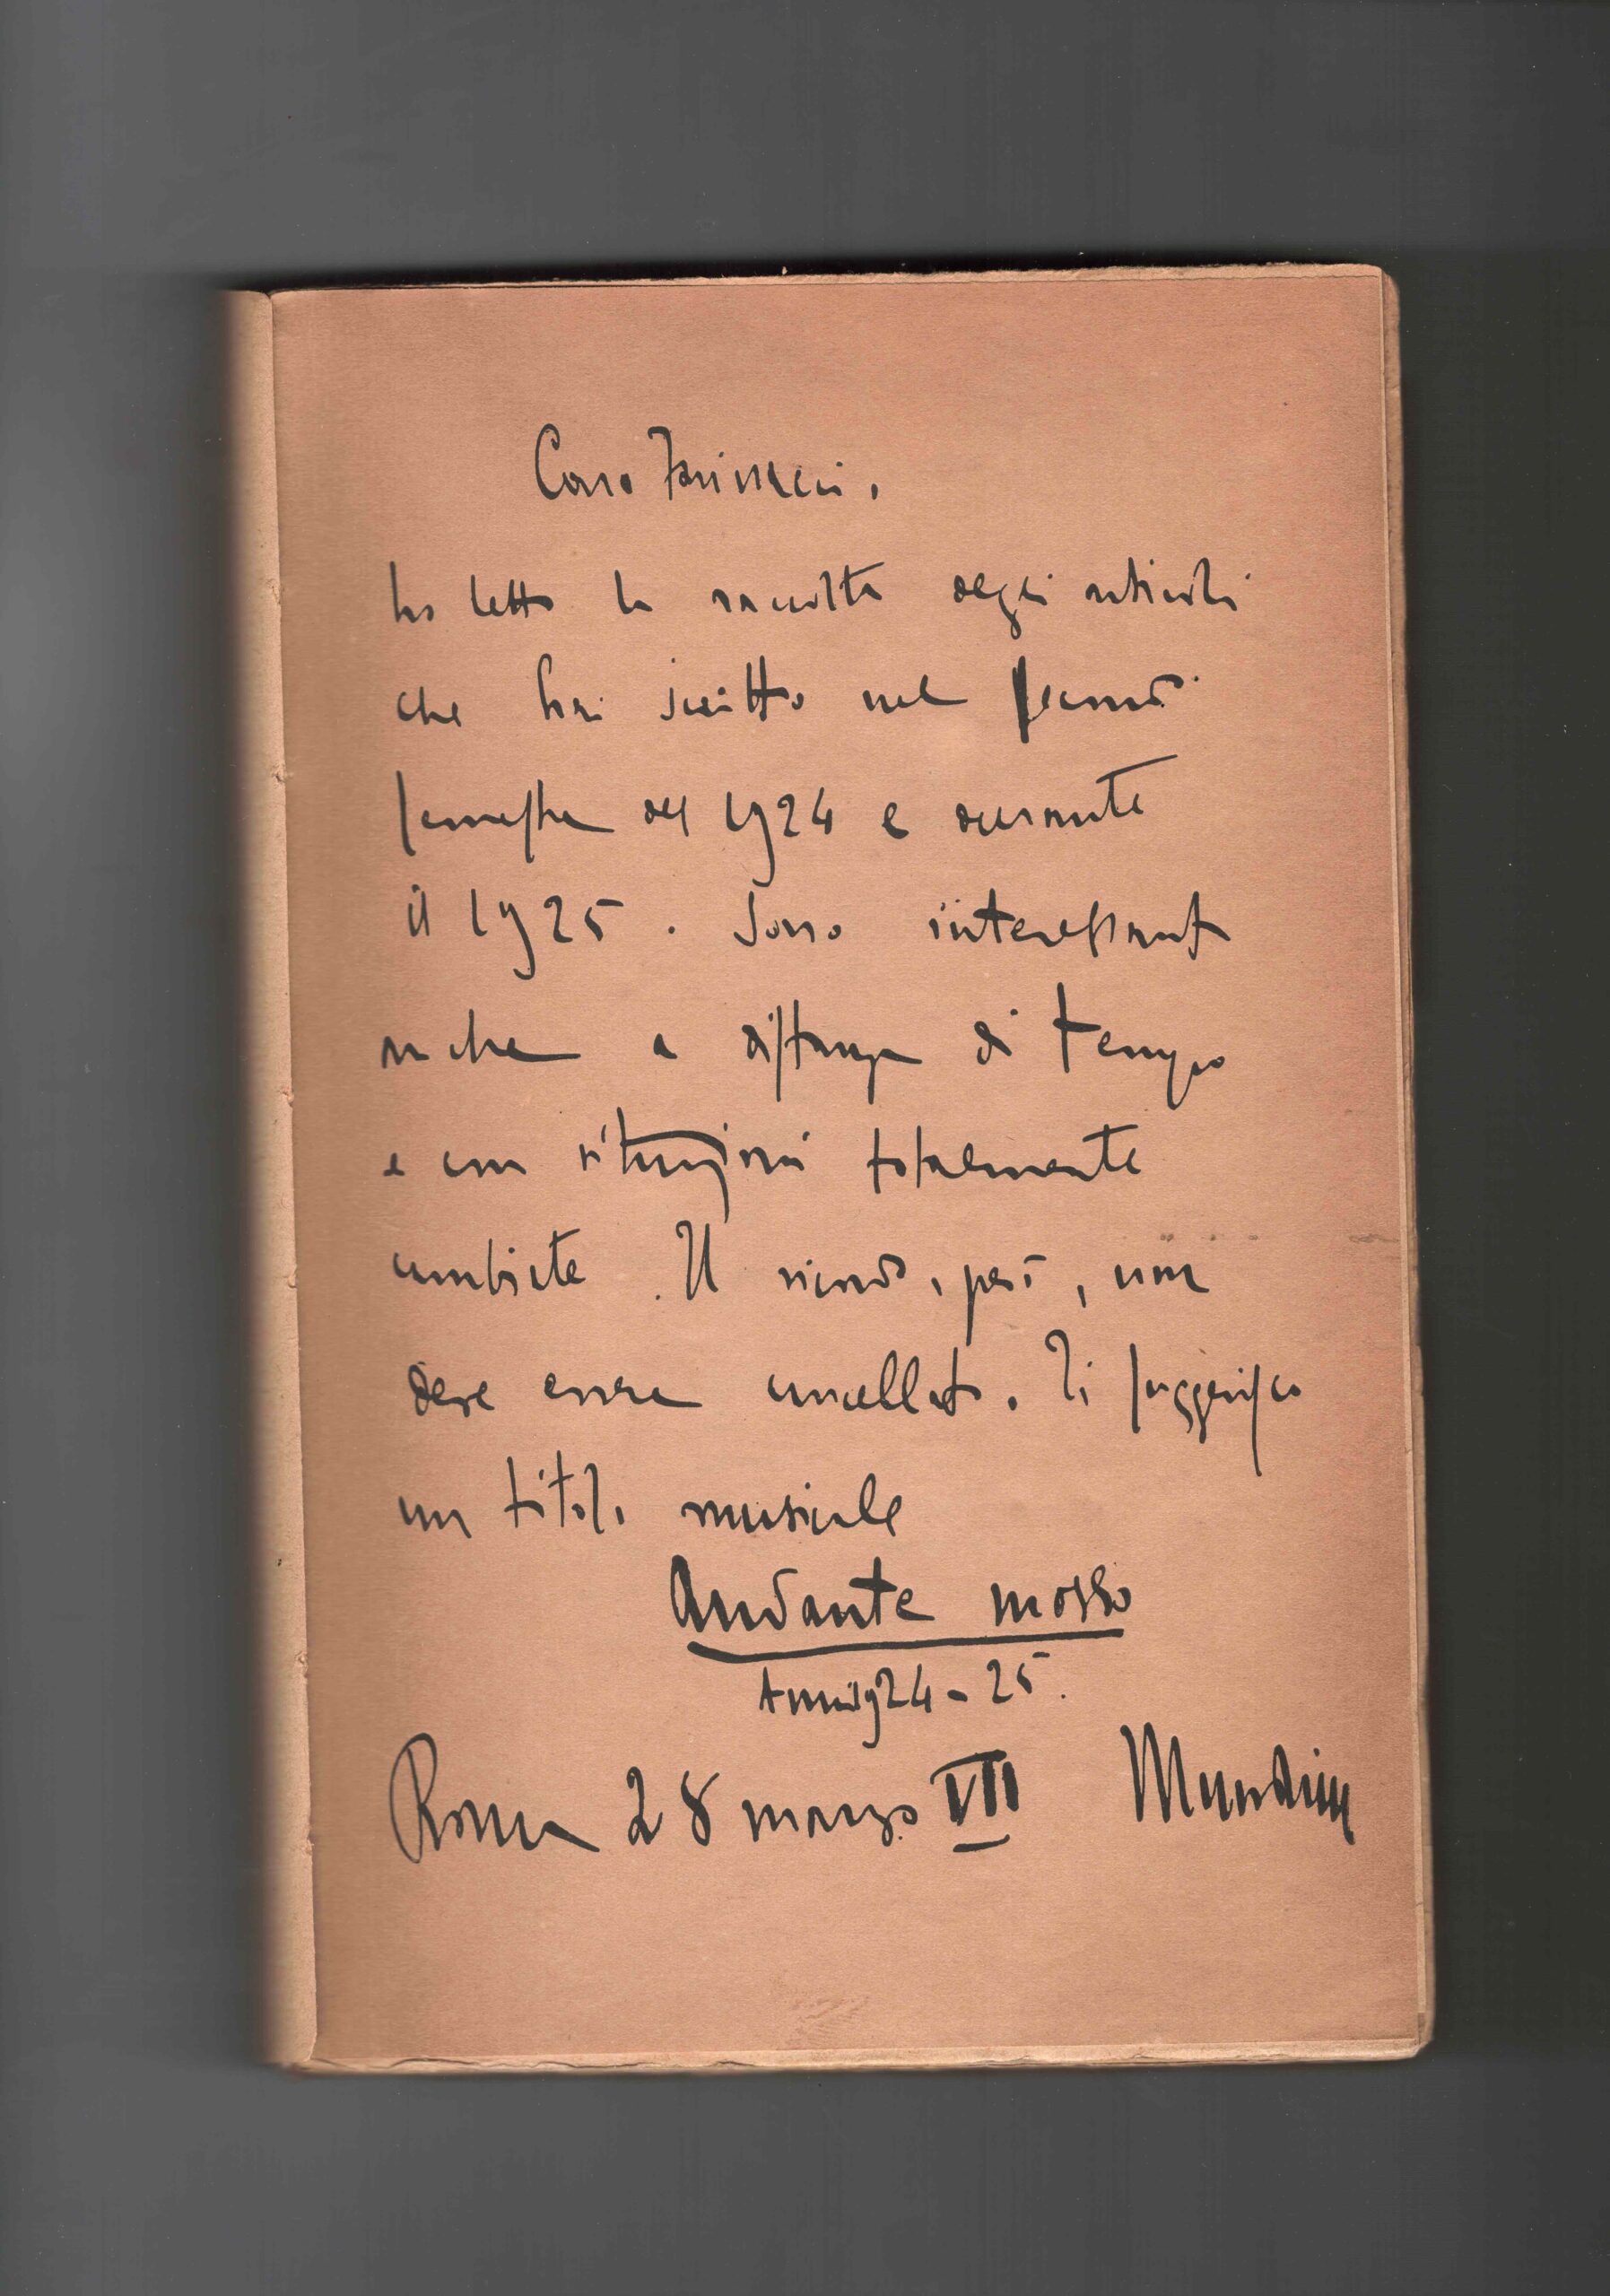 Caro Farinacci,
ho letto la raccolta degli articoli
che hai scritto nel secondo
semestre del 1924 e durante
il 1925. Sono interessanti
anche a distanza di tempo
e con situazioni totalmente
cambiate. Il ricordo, però, non
deve essere cancellato. Ti suggerisco
un titolo musicale
Andante mosso
Anni 1924-25.
Roma 28 marzo VII Mussolini